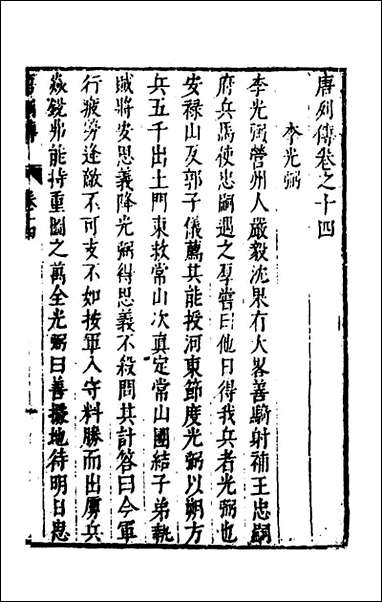 唐列傳卷之十四
李光弼
李光弼營州人嚴毅沈果有大畧善騎射補王忠嗣
府兵馬使忠嗣遇之厚嘗曰他日得我兵者光弼也
安禄山反郭子儀薦其能授河東節度光弼以朔方
兵五千出土門東救常山次真定常山團結子弟執
賊將安思義降光弼得思義不殺問其計答曰今軍
行疲勞逢敵不可支不如按軍入守料勝而出虜兵
焱銳弗能持重圖之萬全光弼曰善據地待明日思
卷十四